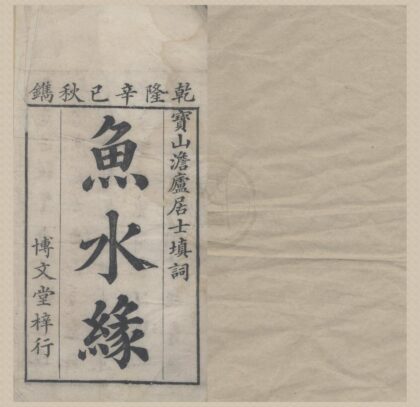 乾隆辛巳秋鐫
寶山澹廬居士填詞
魚水緣
博文堂梓行